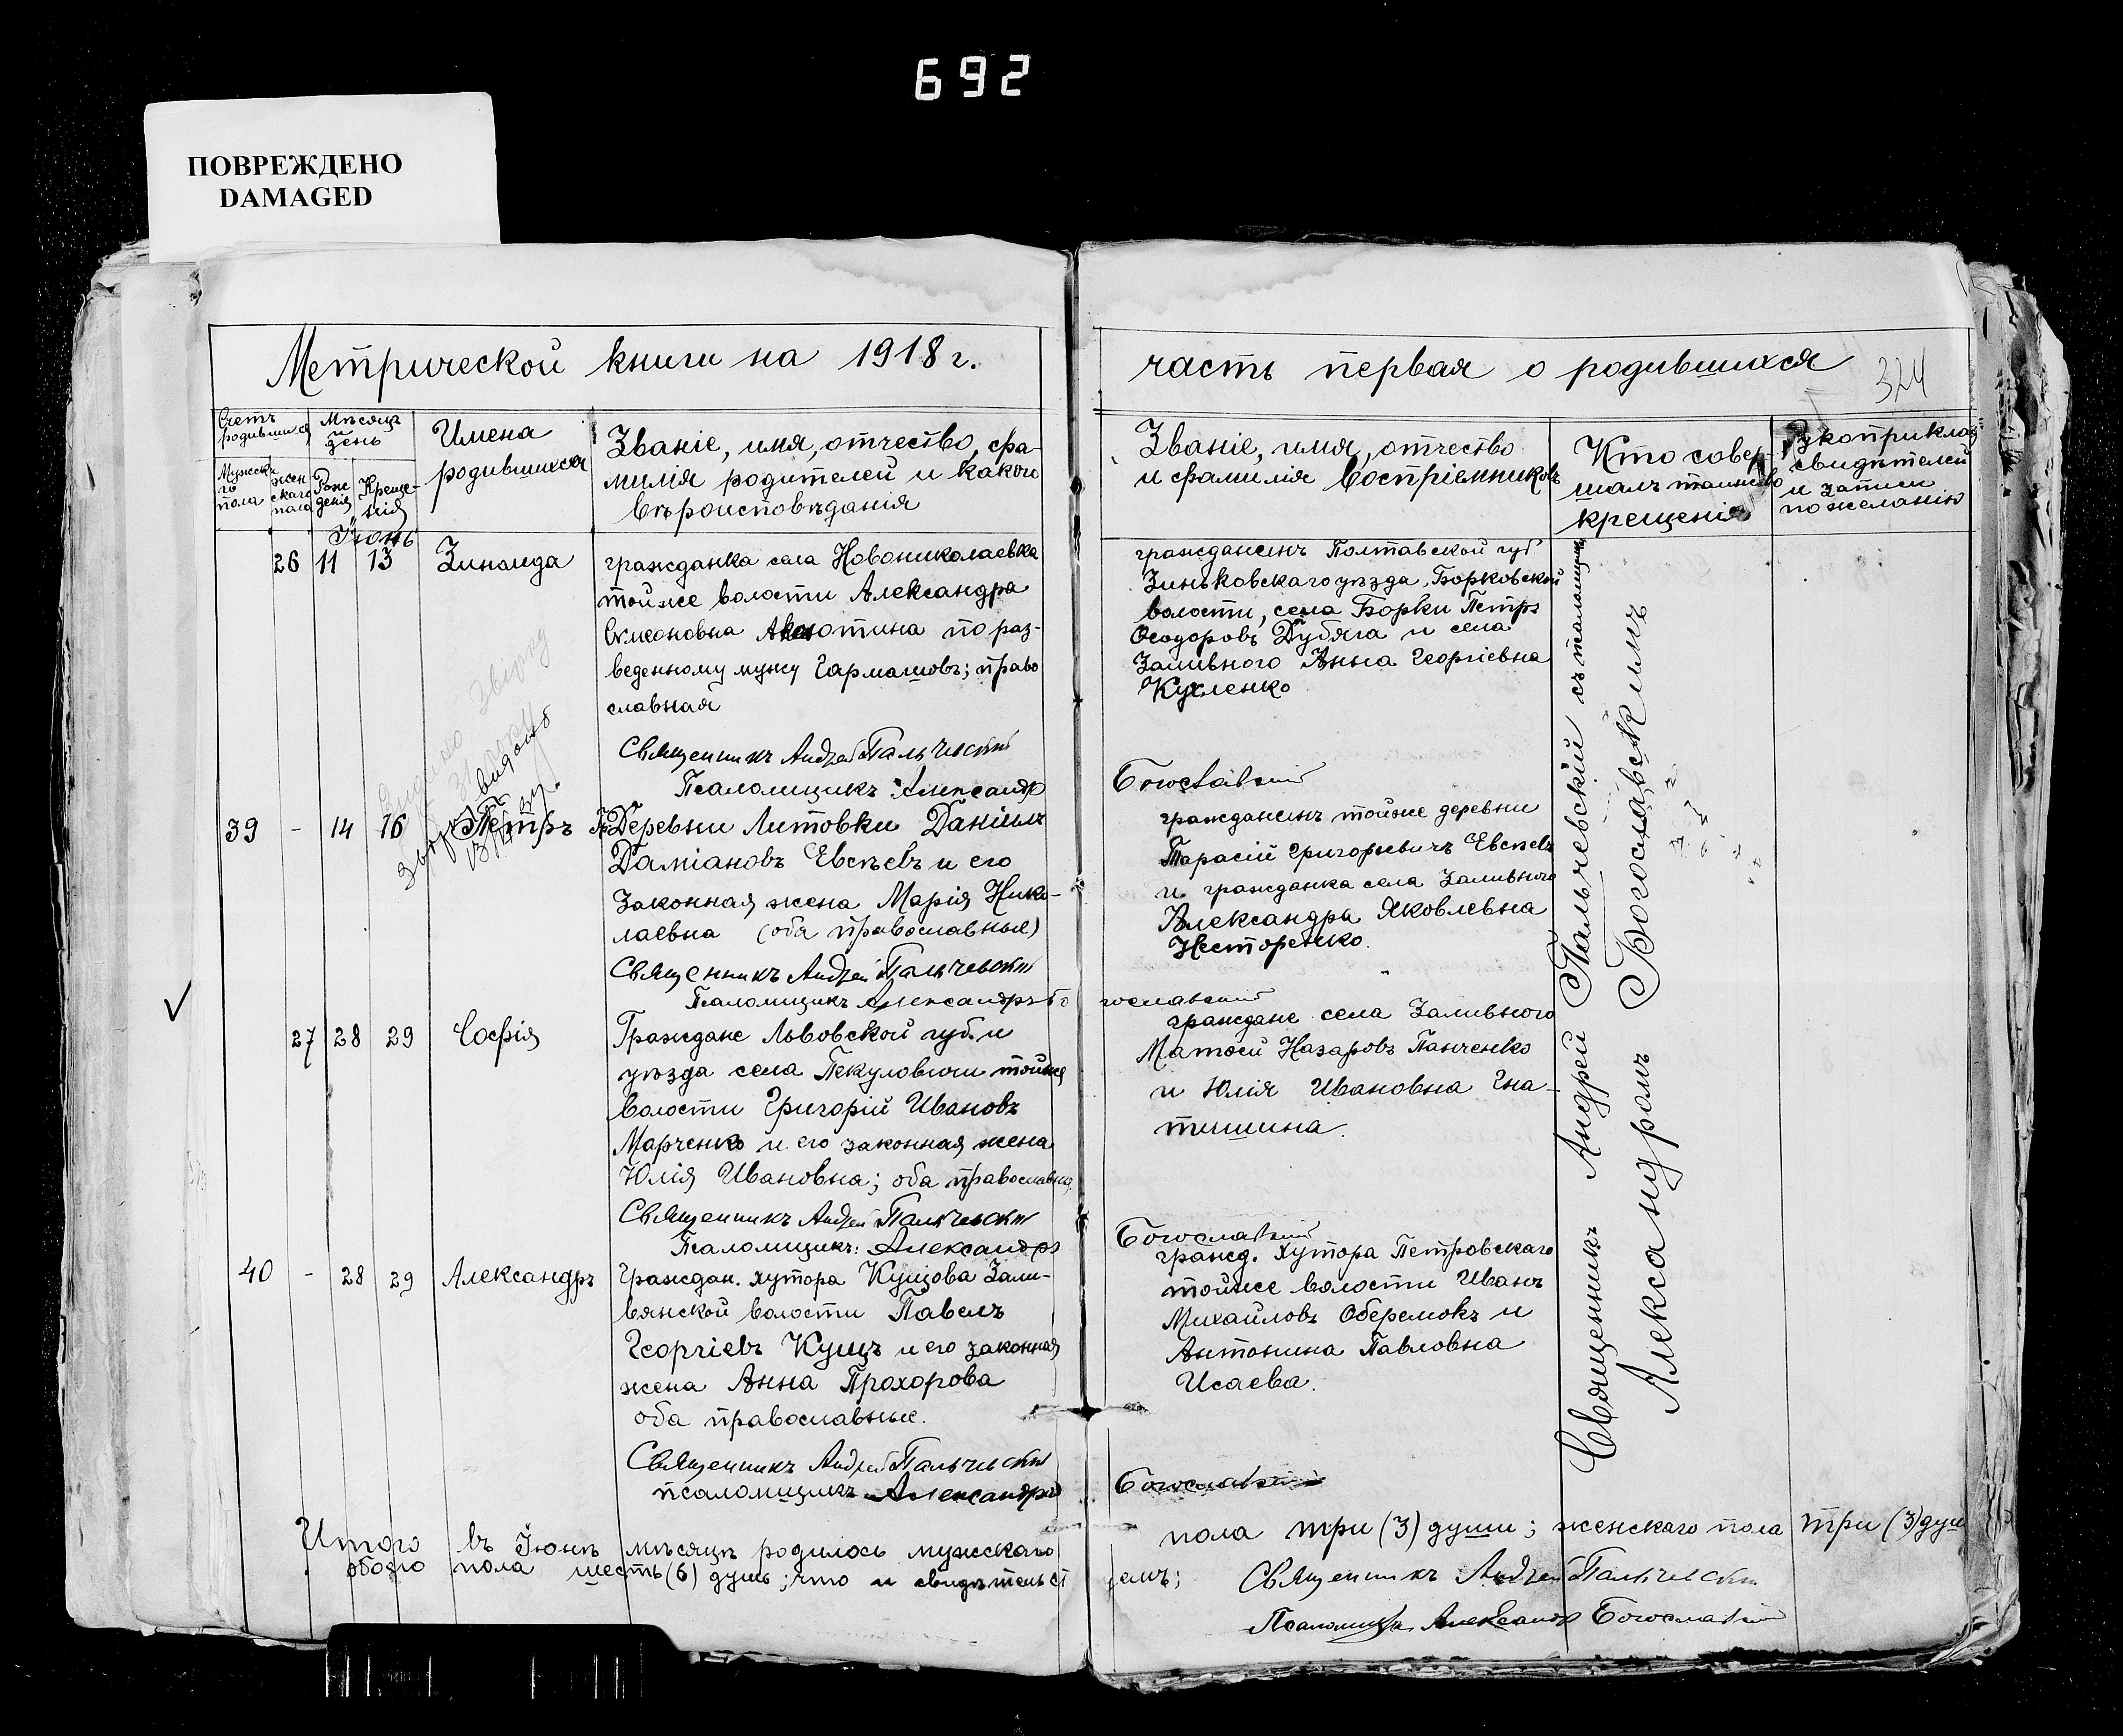 692
ПОВРЕЖДЕНО
DAMAGED
Метрической книги на 1918 г.
часть первая о родившихся
324
Счетъ родившихся
Мужскаго пола
женскаго пола
Мѣсяцъ и день
Рожденія
Крещенія
Имена
родившихся
Званіе, имя, отчество, фа-
милія родителей и какого
вѣроисповѣданія
Званіе, имя, отчество
и фамилія Воспріемниковъ
Кто совер-
шалъ таинство
крещенія
Рукоприклад
свидѣтелей
и записи
по желанію
Іюнь
26 11 13 Зинаида
гражданка села Новониколаевка
тойже волости Александра
Симеоновна по раз-
веденному мужу Гармашовъ; право
славная
Священникъ Андрей Пальчевскій
Псаломщикъ: Александръ
гражданинъ Полтавской губ.
Зиньковскаго уѣзда, Борковской
волости, села Борки Петръ
Ѳеодоровъ Дубяга и села
Заливного Анна Георгіевна
Кухленко
Богославскій
39 - 14 16 Петръ
Деревни Литовки Даніилъ
Даміановъ Евсѣевъ и его
Законная жена Марія Нико-
лаевна (оба православные)
Священникъ Андрей Пальчевскій
Псаломщикъ Александръ Бо
гражданинъ тойже деревни
Тарасій Григорьевичъ Евсѣевъ
и гражданка села Заливного
Александра Яковлевна
Несторенко.
гославскій
27 28 29 Софія
Граждане Львовской губ. и
уѣзда села тойже
Волости Григорій Ивановъ
Марченко и его законная жена
Юлія Ивановна; оба православны
Священникъ Андрей Пальчевскій
Псаломщикъ: Александръ
граждане села Заливного
Матѳей Назаровъ Панченко
и Юлія Ивановна Гна-
тишина.
Богославскій
40 - 28 29 Александръ
Граждан. хутора Кущова Зали-
вянской волости Павелъ
Георгіевъ Кущъ и его законная
жена Анна Прохорова
оба православные.
Священникъ Андрей Пальчевскій
псаломщикъ Александръ
гражд. хутора Петровскаго
тойже волости Иванъ
Михайловъ Оберемокъ и
Антонина Павловна
Исаева.
Богославскій
Священникъ Андрей Пальчевскій съ псаломщикомъ
Александромъ Богославскимъ
Итого въ Іюнѣ мѣсяцѣ родилось мужскаго
пола три (3) души; женскаго пола три (3) души
обоего пола шесть (6) душъ; что и свидѣтельст
уемъ;
Священникъ Андрей Пальчевскій
Псаломщикъ Александръ Богославскій